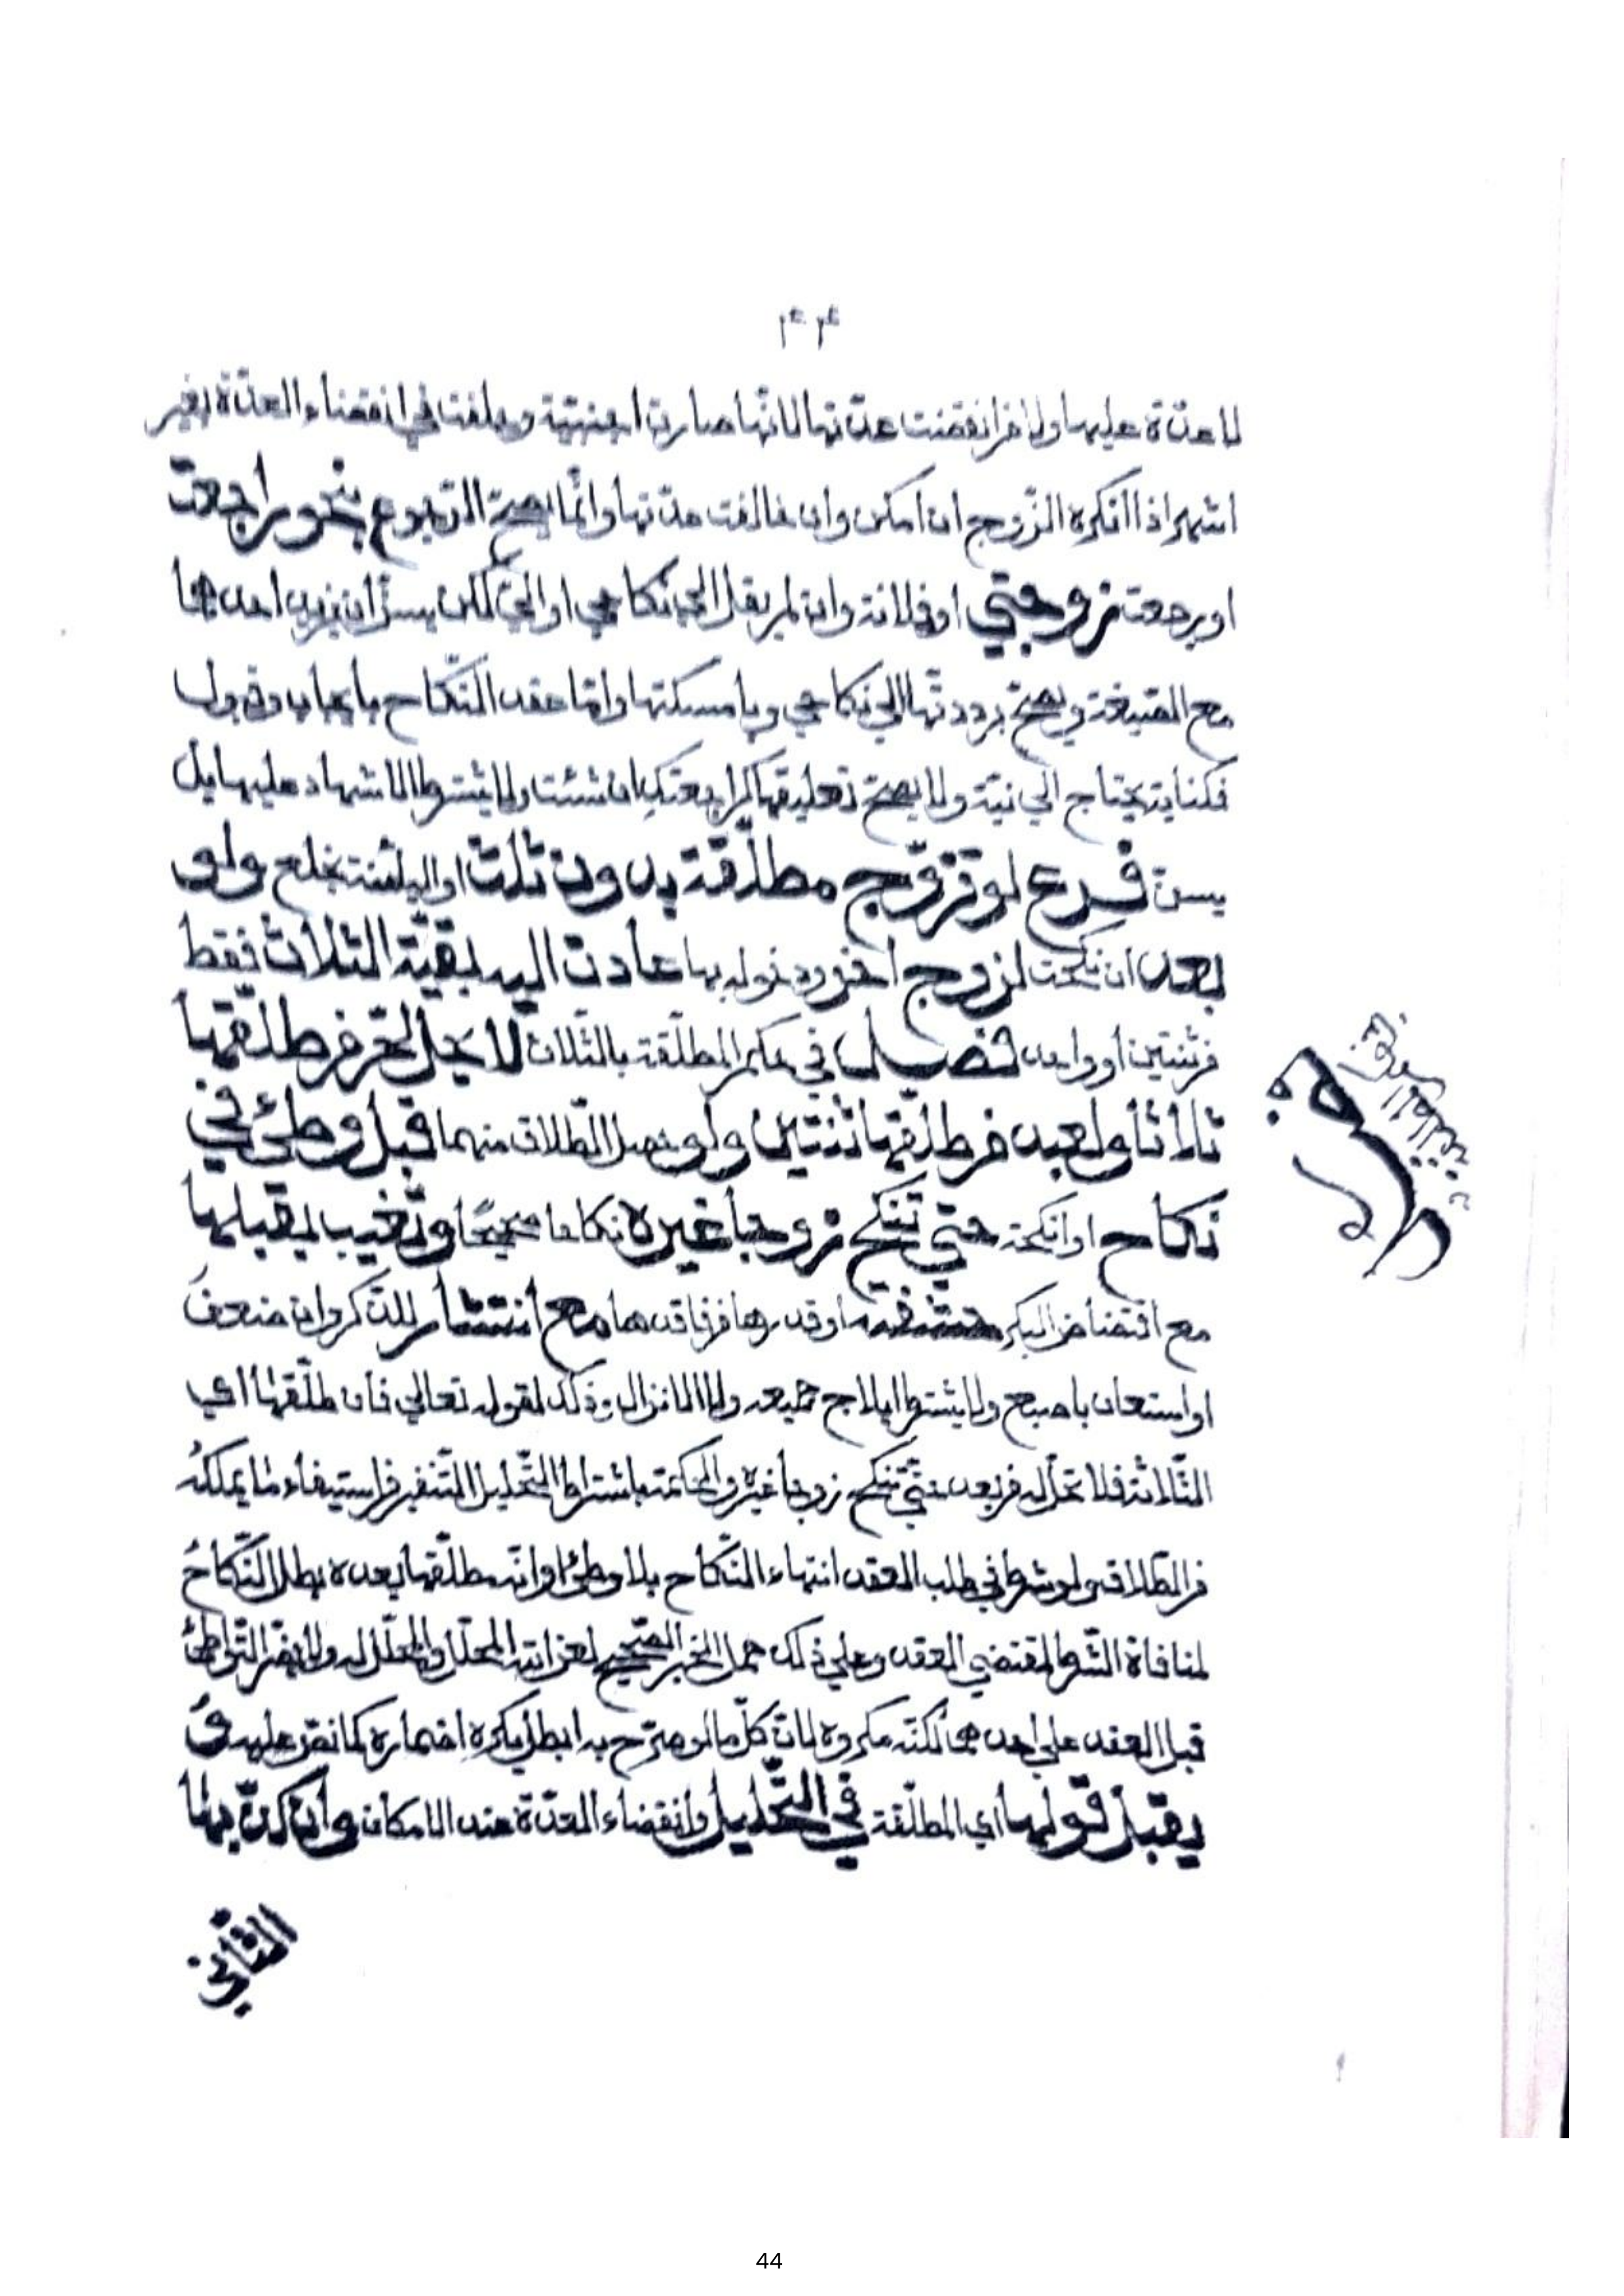 ٤٤
لا عدّة عليها ولا من انقضت عدّتها لانّها صارت اجنبيّة وحلفت في انقضاء العدّة بغير
اشهر اذا انكره الزّوج ان امكن وان خالفت عدّتها وانّما يصحّ الرّجوع بنحو راجعت
او رجعت زوجتي او فلانة وان لم يقل الى نكاحي او اليّ لكن يسنّ ان يزيد احدهما
مع الصّيغة ويصحّ برددتها الى نكاحي وبامسكتها وامّا عقد النّكاح بايجاب وقبول
فكناية يحتاج الى نيّة ولا يصحّ تعليقها كراجعتك ان شئت ولا يشترط الاشهاد عليها بل
يسنّ فرع لو تزوّج مطلّقة بدون ثلث او البائنة بخلع ولو
بعد ان نكحت لزوج اخر ودخوله بها عادت اليه ببقيّة الثلاث فقط
من ثنتين او واحد فصل في حكم المطلّقة بالثّلاث لا يحلّ لحرّ من طلّقها
ثلاثا ولعبد من طلّقها ثنتين ولو حصل الطّلاق منهما قبل وطئ في
نكاح او انكحة حتّى تنكح زوجا غيره نكاحا صحيحا وتغيب بقبلها
مع افتضاض البكر حشفة او قدرها من فاقدها مع انتشار للذّكر وان ضعف
او استعان باصبع ولا يشترط ايلاج جميعه ولا الانزال وذلك لقوله تعالى فان طلّقها اي
الثّلاثة فلا تحلّ له من بعد حتّى تنكح زوجا غيره والحكمة باشتراط التّحليل التّنفير من استيفاء ما يملكه
من الطّلاق ولو شرط في صلب العقد انتهاء النّكاح بلا وطئ او انه مطلّقها بعده بطل النّكاح
لمنافاة الشّرط لمقتضي العقد وعلى ذلك حمل الخبر الصّحيح لعن الله المحلّل والمحلّل له ولا يضرّ التّواطئ
قبل العقد على احدهما لكنّه مكروه لانّ كلّ ما لو صرّح به ابطل يكره اضماره كما نصّ عليه و
يقبل قولها اي المطلّقة في التّحليل وانقضاء العدّة عند الامكان وان كذّبها
الثّاني